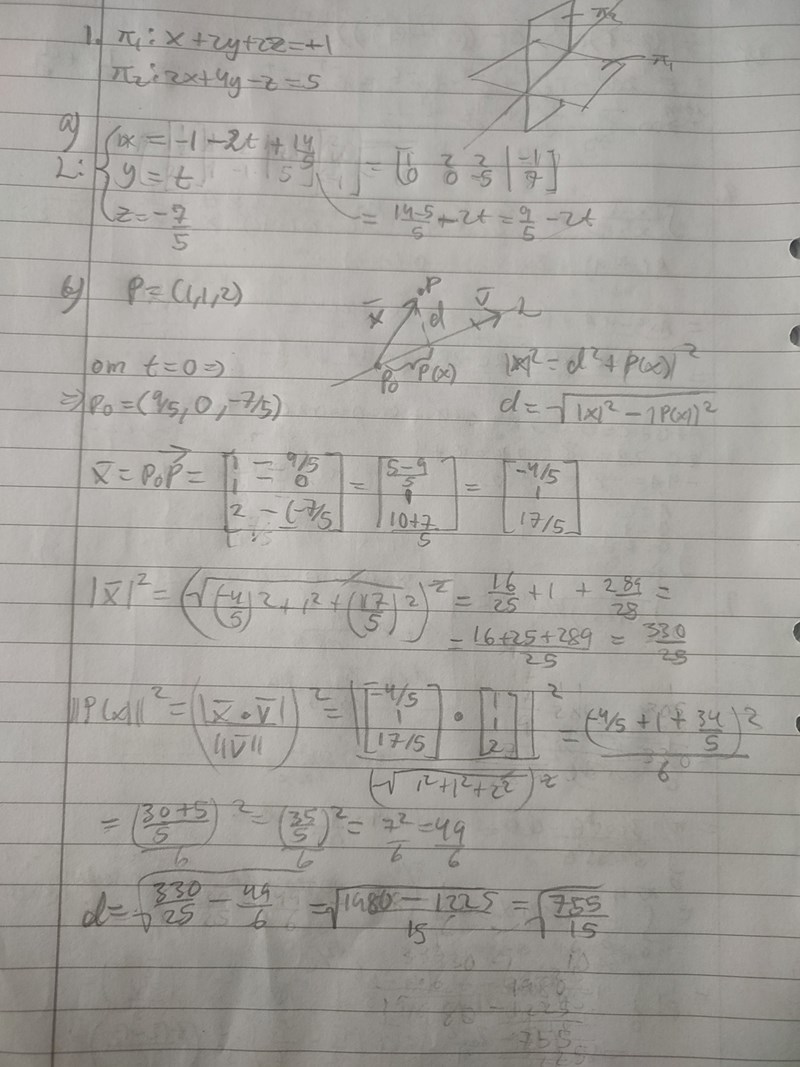 1. π₁: x+2y+2z=+1
π₂: 2x+4y-z=5
π₂
π₁
a)
L: { x = -1-2t+14/5 = [1 2 2 | -1
0 0 -5 | 7]
y = t
z = -7/5
= (14-5)/5 - 2t = 9/5 - 2t
b) P=(1,1,2)
x̄ P d v̄ L
P₀ P(x)
om t=0 ⇒
⇒ P₀=(9/5, 0, -7/5)
|x|² = d² + P(x)|²
d = √(|x|² - |P(x)|²)
x̄ = P₀P = [1 - 9/5
1 - 0
2 - (-7/5)] = [(5-9)/5
1
(10+7)/5] = [-4/5
1
17/5]
|x̄|² = (√((-4/5)² + 1² + (17/5)²))² = 16/25 + 1 + 289/28 =
= (16+25+289)/25 = 330/25
||P(x)||² = (|x̄ • v̄| / ||v̄||)² = |[-4/5
1
17/5] • [1
1
2]|² / (√(1²+1²+2²))² = (-4/5 + 1 + 34/5)² / 6
= ((30+5)/5)² / 6 = (35/5)² / 6 = 7²/6 = 49/6
d = √(330/25 - 49/6) = √((1980 - 1225)/15) = √(755/15)
1980
1225
755